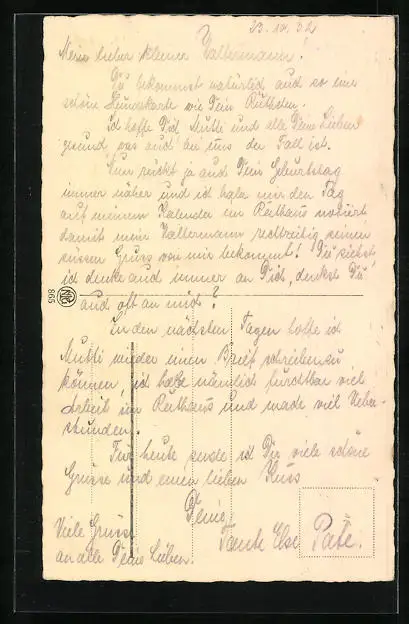 23.10.32
Mein lieber kleiner Valtermann!
Du bekommst natürlich auch so eine
schöne Hundekarte wie Dein Ruthchen.
Ich hoffe Dich Mutti und alle Deine Lieben
gesund was auch bei uns der Fall ist.
Nun rückt ja auch Dein Geburtstag
immer näher und ich habe mir den Tag
auf meinem Kalender im Rathaus notiert
damit mein Valtermann rechtzeitig seinen
süssen Gruss von mir bekommt! Du siehst
ich denke auch immer an Dich, denkst Du
auch oft an mich?
865
In den nächsten Tagen hoffe ich
Mutti wieder einen Brief schreiben zu
können, ich habe nämlich furchtbar viel
Arbeit im Rathaus und mache viel Ueber-
stunden.
Für heute sende ich Dir viele schöne
Grüsse und einen lieben Kuss
Deine
Tante Else
Pate.
Viele Grüsse
an alle Deine Lieben.